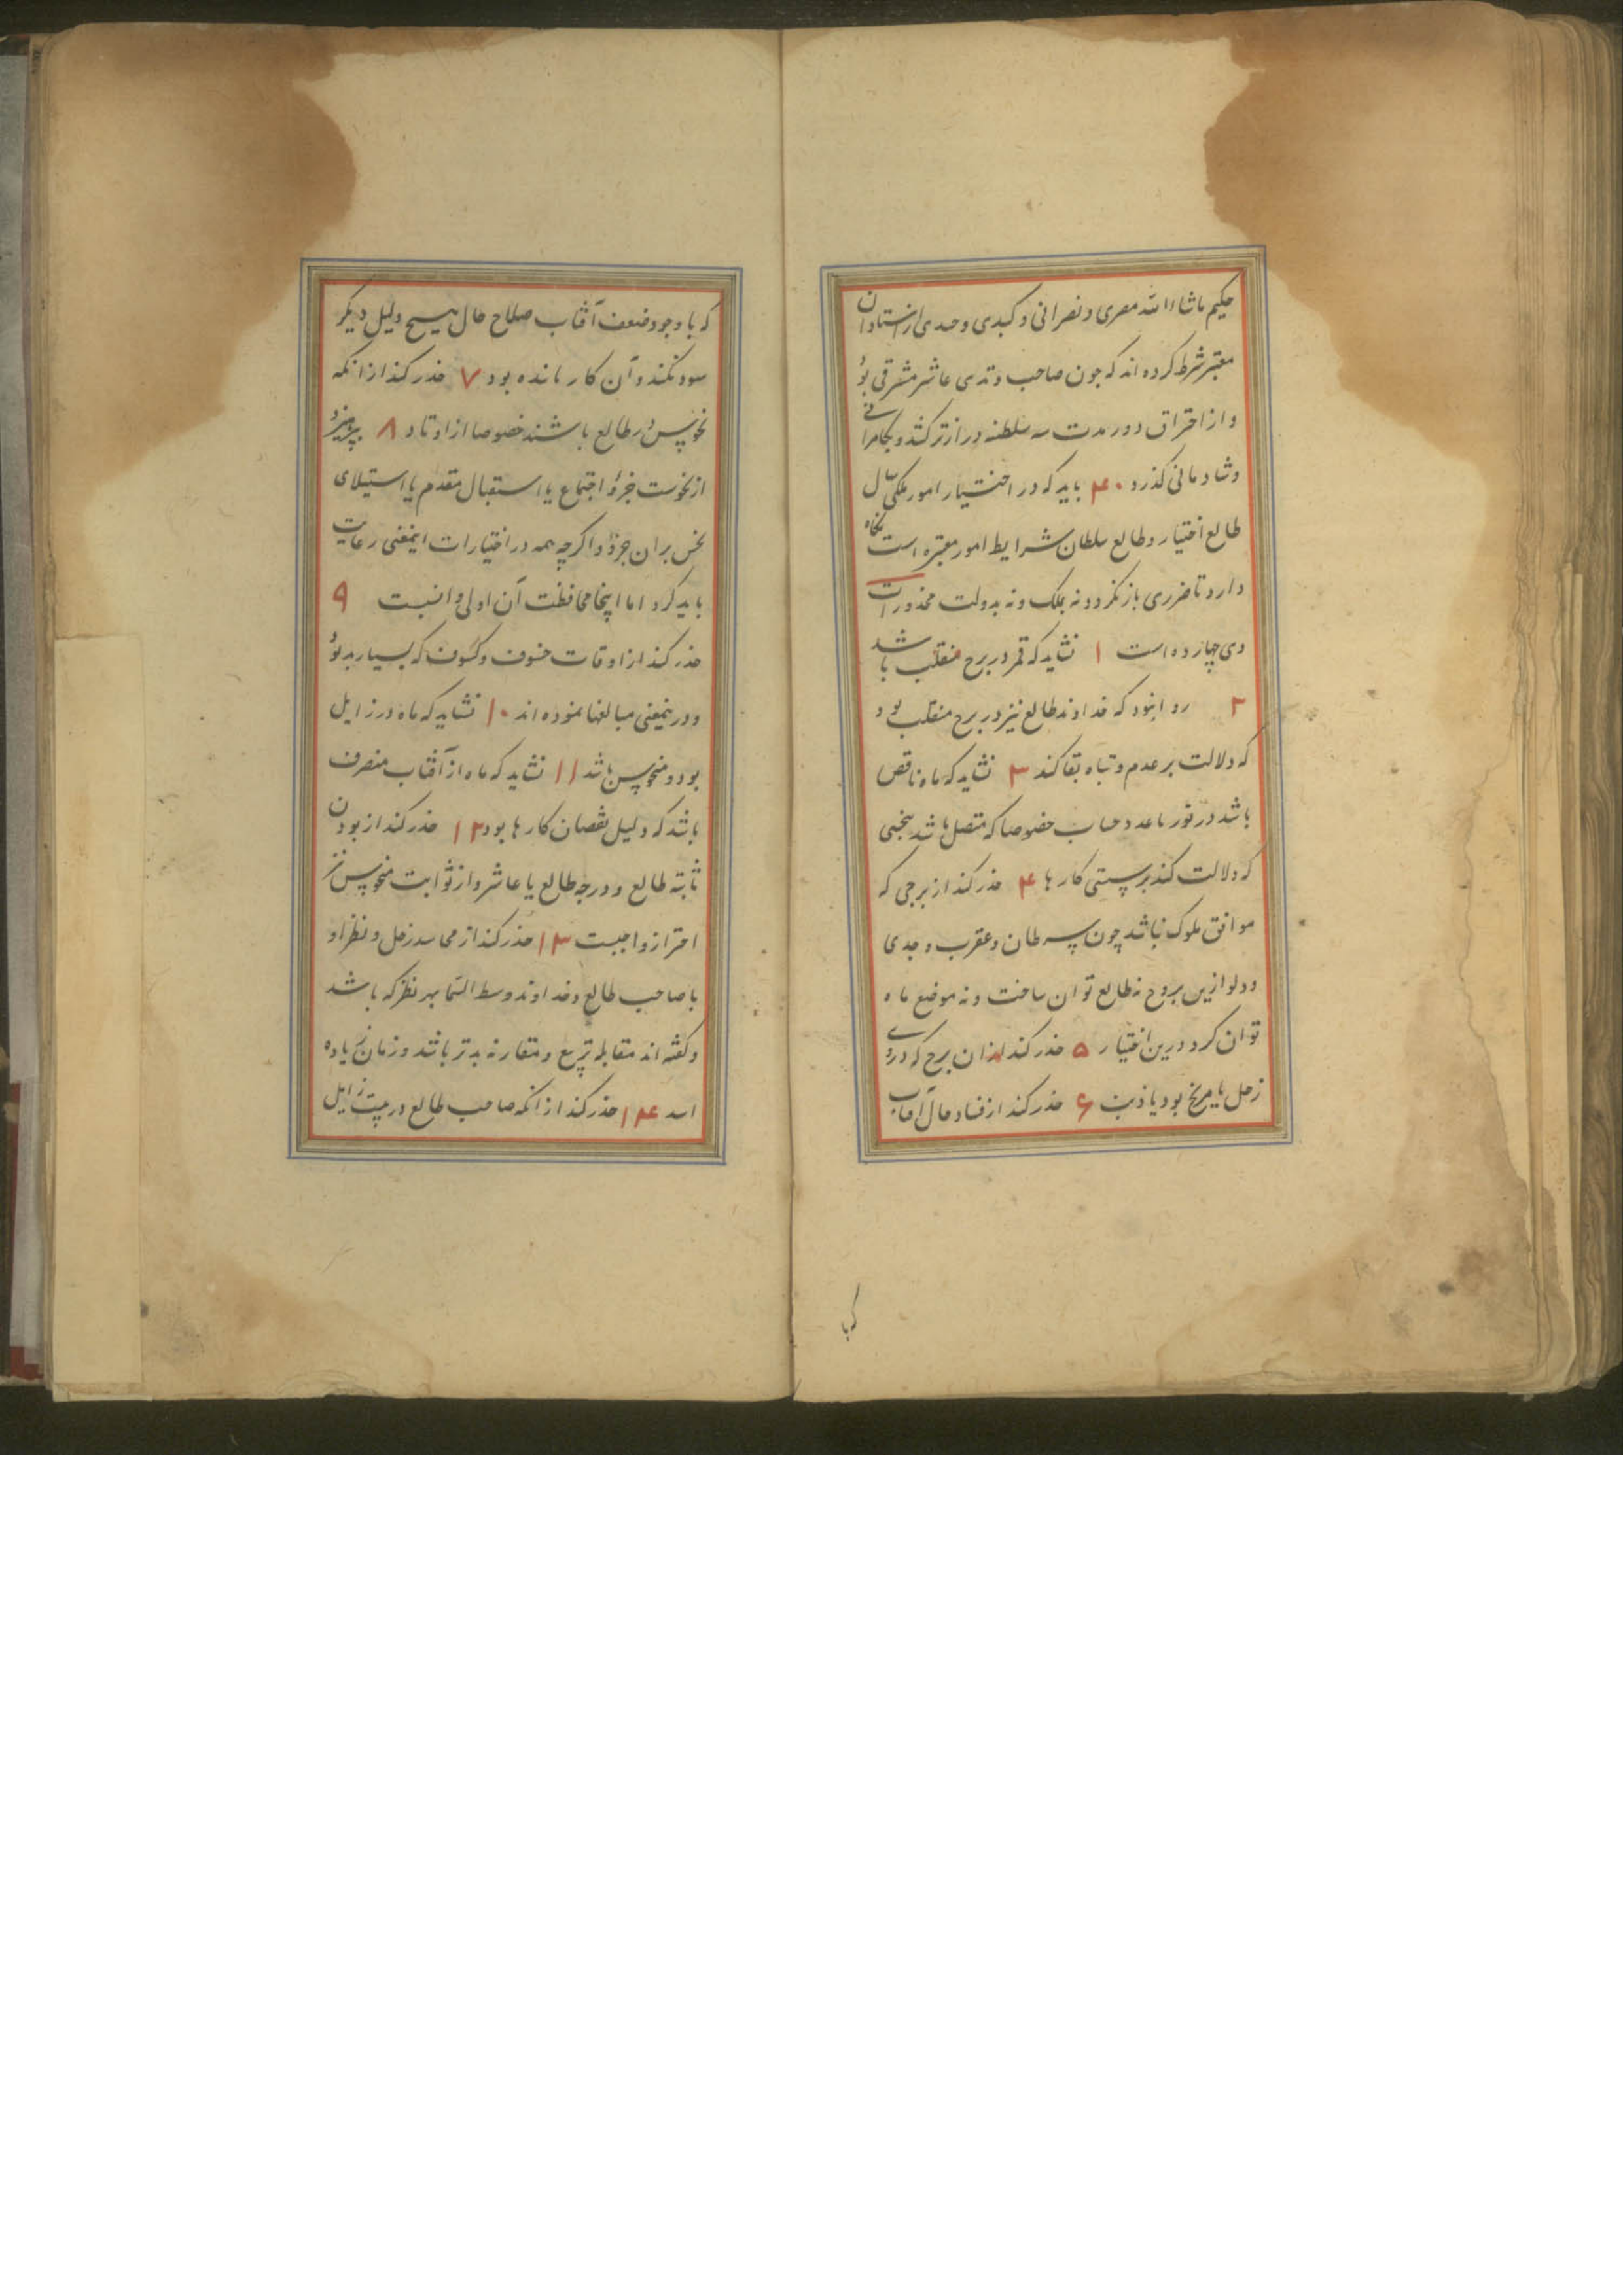 حکیم ماشاءالله مصری و نصرانی و کبدی و حدی از استادان
معتبر شرط کرده اند که چون صاحب وتدی عاشر مشرقی بود
و از احتراق دور مدت سلطنه درازتر کشد و بکامرانی
و شادمانی گذرد ۴۰ باید که در اختیار امور ملکی سال
طالع اختیار و طالع سلطان شرایط امور معتبره است نگاه
دارد تا ضرری بازنگردد نه بملک و نه بدولت محذورات
وی چهارده است ۱ نشاید که قمر در برج منقلب باشد
۲ روا نبود که خداوند طالع نیز در برج منقلب بود
که دلالت بر عدم و تباه بقا کند ۳ نشاید که ماه ناقص
باشد در نور یا عدد و حساب خصوصا که متصل باشد بنحسی
که دلالت کند بر سستی کارها ۴ حذر کند از برجی که
موافق ملوک نباشد چون سرطان و عقرب و جدی
و دلو ازین بروج نه طالع توان ساخت و نه موضع ماه
توان کرد درین اختیار ۵ حذر کند از ان برج که دروی
زحل یا مریخ بود یا ذنب ۶ حذر کند از فساد حال آفتاب
کبا
که با وجود ضعف آفتاب صلاح حال هیچ دلیل دیگر
سود نکند و آن کار مانده بود ۷ حذر کند از انکه
نحوس در طالع باشند خصوصا از اوتاد ۸ بپرهیزد
از نحوست جزؤ اجتماع یا استقبال مقدم یا استیلای
نحس بران جزؤ و اگرچه همه در اختیارات اینمعنی رعایت
باید کرد اما اینجا محافظت آن اولی و انسبت ۹
حذر کند از اوقات خسوف و کسوف که بسیار بد بود
و درینمعنی مبالغها نموده اند ۱۰ نشاید که ماه در زایل
بود و منحوس باشد ۱۱ نشاید که ماه از آفتاب منصرف
باشد که دلیل نقصان کارها بود ۱۲ حذر کند از بودن
ثابته طالع و درجه طالع یا عاشر و از ثوابت منحوس نیز
احتراز واجبست ۱۳ حذر کند از محاسد زحل و نظر او
با صاحب طالع و خداوند وسط السما بهر نظر که باشد
و گفته اند مقابله تربیع و مقارنه بدتر باشد و زمان زیاده
اسد ۱۴ حذر کند از انکه صاحب طالع در بیت زایل